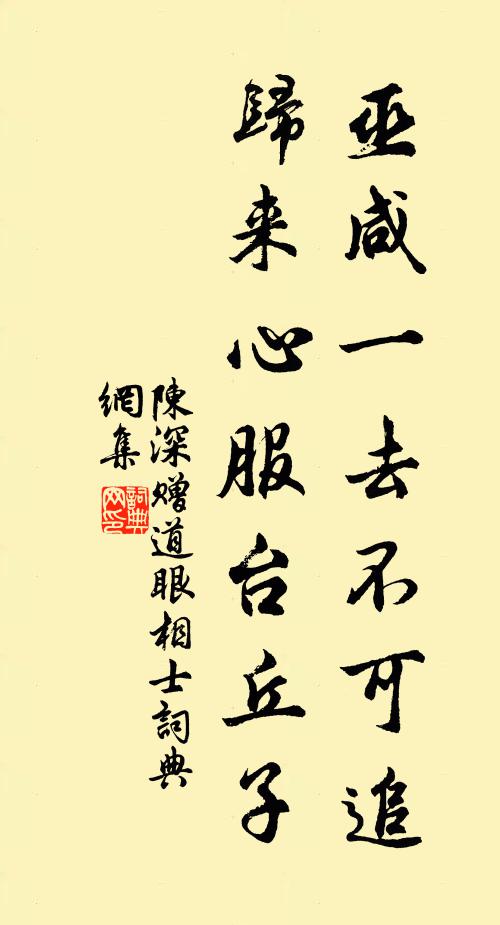 巫咸一去不可追
歸来心服台丘子
陳深赠道眼相士詞典
網集
詞典
网印